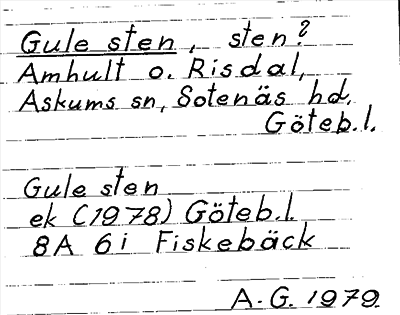 Gule sten, sten?
Amhult o. Risdal,
Askums sn, Sotenäs hd.
Göteb.l.
Gule sten
ek (1978) Göteb.l.
8A 6i Fiskebäck
A.G. 1979.